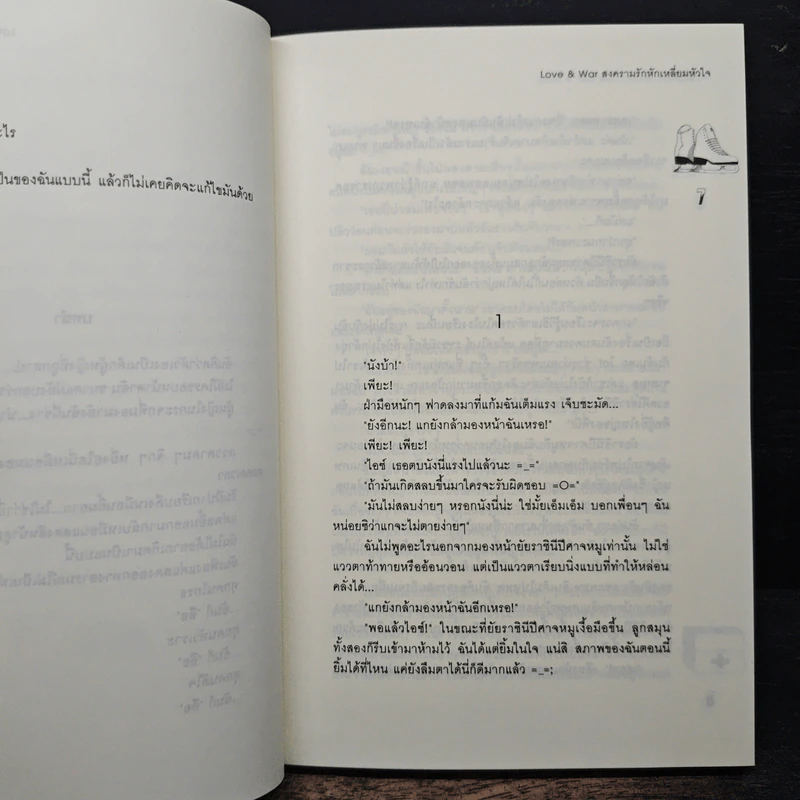 ะไร
ป็นของฉันแบบนี้ แล้วก็ไม่เคยคิดจะแก้ไขมันด้วย
Love & War สงครามรักหักเหลี่ยมหัวใจ
7
1
"นังบ้า!"
เพียะ!
ฝ่ามือหนักๆ ฟาดลงมาที่แก้มฉันเต็มแรง เจ็บชะมัด...
"ยังอีกนะ! แกยังกล้ามองหน้าฉันเหรอ!"
เพียะ! เพียะ!
"ไอซ์ เธอตบนังนี่แรงไปแล้วนะ =_="
"ถ้ามันเกิดสลบขึ้นมาใครจะรับผิดชอบ =O="
"มันไม่สลบง่ายๆ หรอกนังนี่น่ะ ใช่มั้ยเอ็มเอ็ม บอกเพื่อนๆ ฉัน
หน่อยซิว่าแกจะไม่ตายง่ายๆ"
ฉันไม่พูดอะไรนอกจากมองหน้ายัยราชินีปีศาจหมูเท่านั้น ไม่ใช่
แววตาท้าทายหรืออ้อนวอน แต่เป็นแววตาเรียบนิ่งแบบที่ทำให้หล่อน
คลั่งได้...
"แกยังกล้ามองหน้าฉันอีกเหรอ!"
"พอแล้วไอซ์!" ในขณะที่ยัยราชินีปีศาจหมูเงื้อมือขึ้น ลูกสมุน
ทั้งสองก็รีบเข้ามาห้ามไว้ ฉันได้แต่ยิ้มในใจ แน่สิ สภาพของฉันตอนนี้
ยิ้มได้ที่ไหน แค่ยังลืมตาได้นี่ก็ดีมากแล้ว =_=;